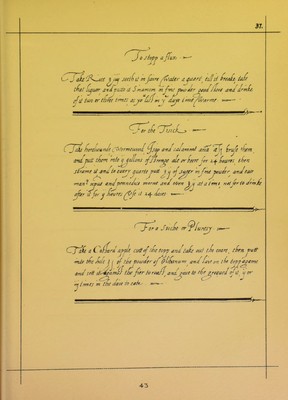 37.
To stopp a flux
Take Rice ʒ iiij seeth it in faire Water a quart, till it breake, take
that liquor and putt it Sinamon in fine powder good store and drinke
of it two or three times as yo will in ye daye time Warme
For the Tisick
Take horehounds Wormewood Isop and calamint ana ʒ bruse them
and putt them into gallons of stronge ale or beere for 24 howres then
streine it and to every quarte putt ʒ of suger in fine powder, and
and eate ʒ at a time, use so to drinke
after it for howres Use it 14 dayes
For a stiche or Plurisy
Take a apple cutt of the topp and take out the coare, then putt
into the hole ʒ j of the powder of Olibanum, and laie on the topp againe
and sett it against the fier to roast, and give to the greeved of it or
times in the daie to eate.
43